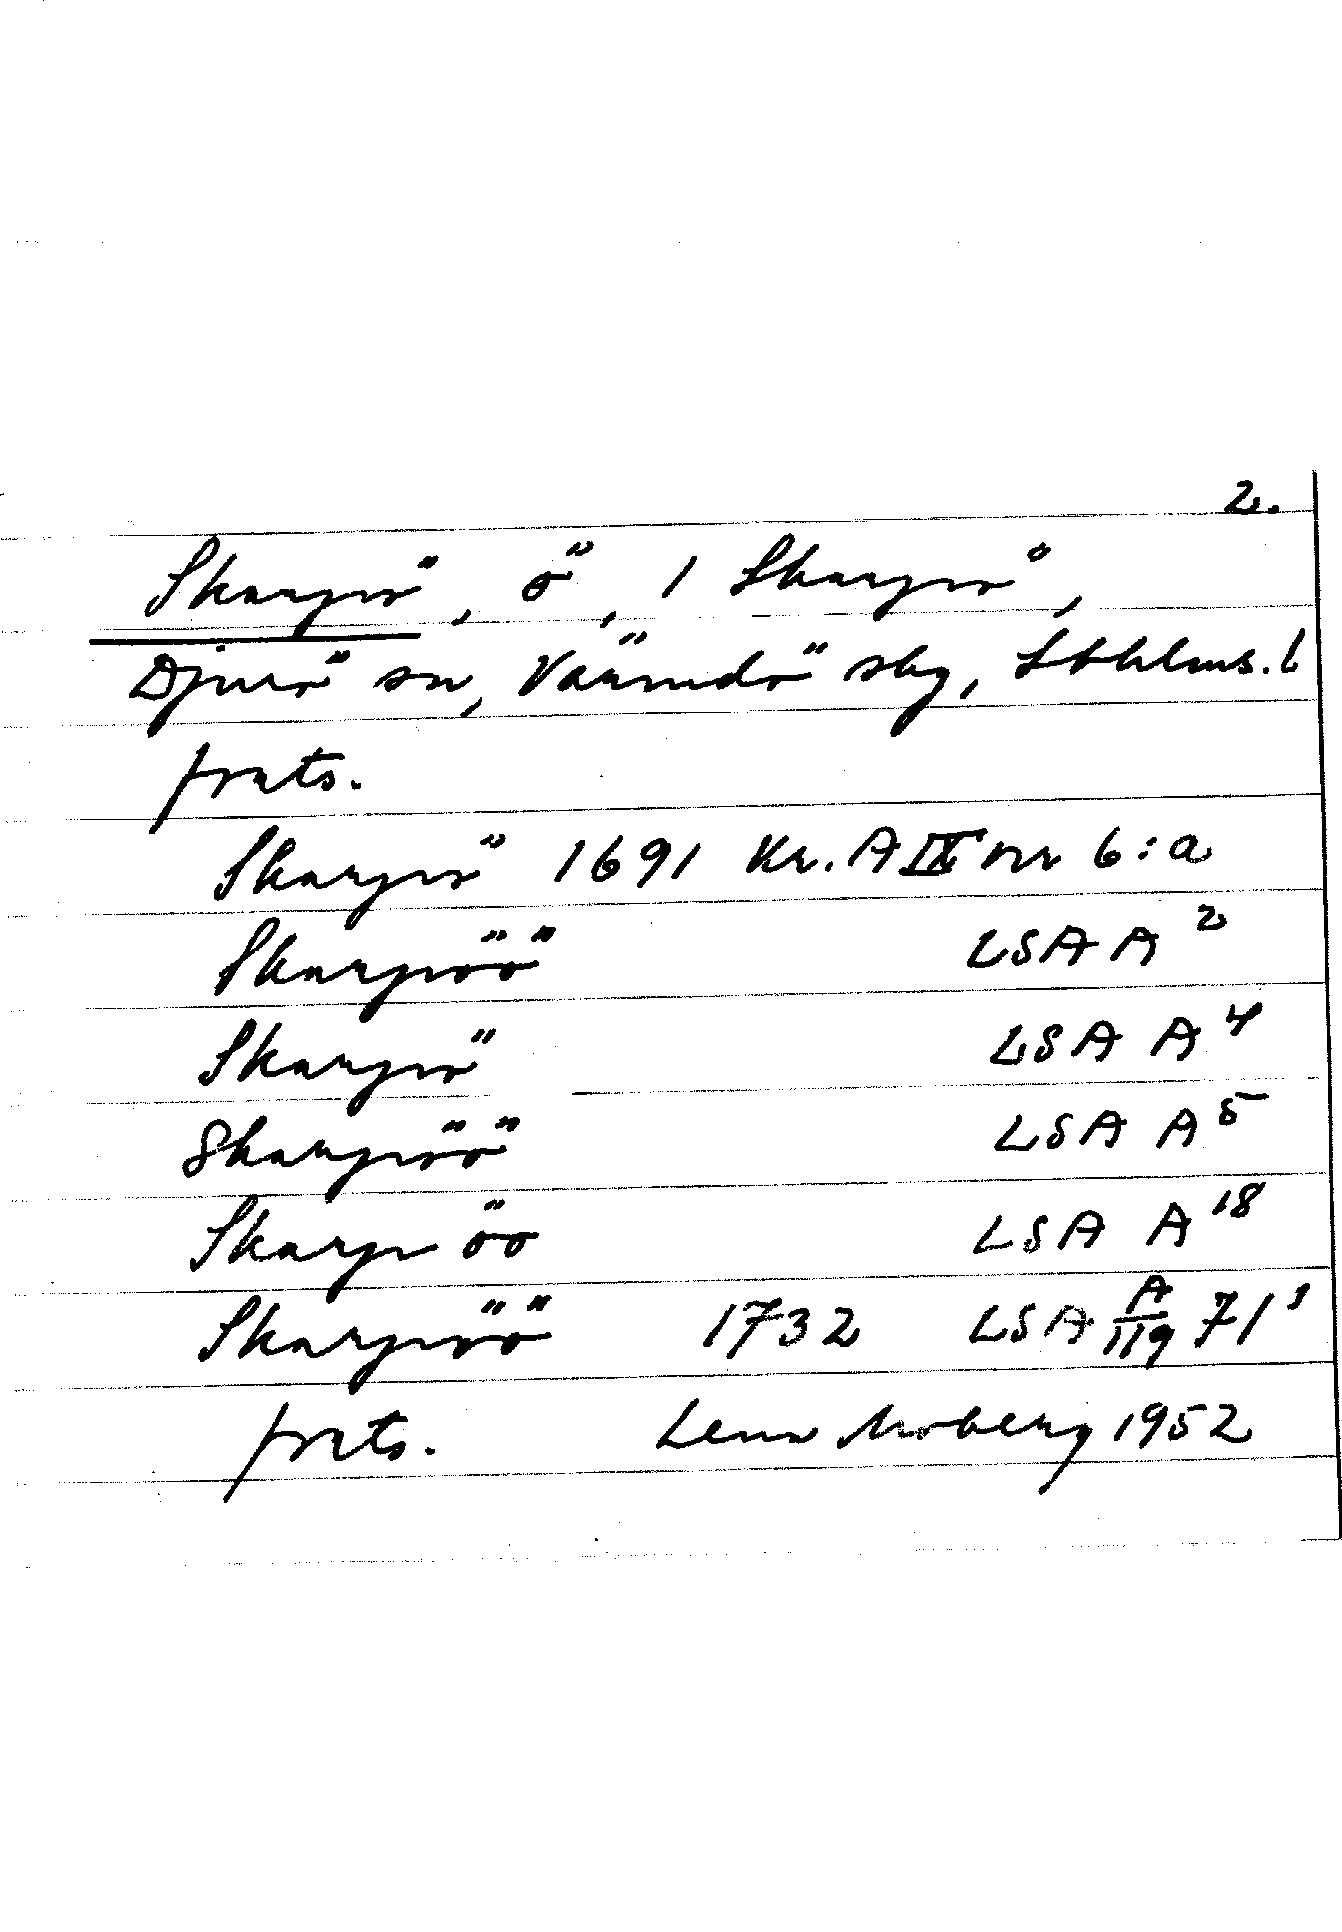 2.
Skarpö, ö, 1 Skarpö,
Djurö sn, Värmdö skg, Sthlms. l
forts.
Skarpö 1691 Kr. A IX nr 6:a
Skarpöö LSA A 2
Skarpö LSA A 4
Skarpöö LSA A 5
Skarp öo LSA A 18
Skarpöö 1732 LSA A/119 71 1
forts. Lena Moberg 1952